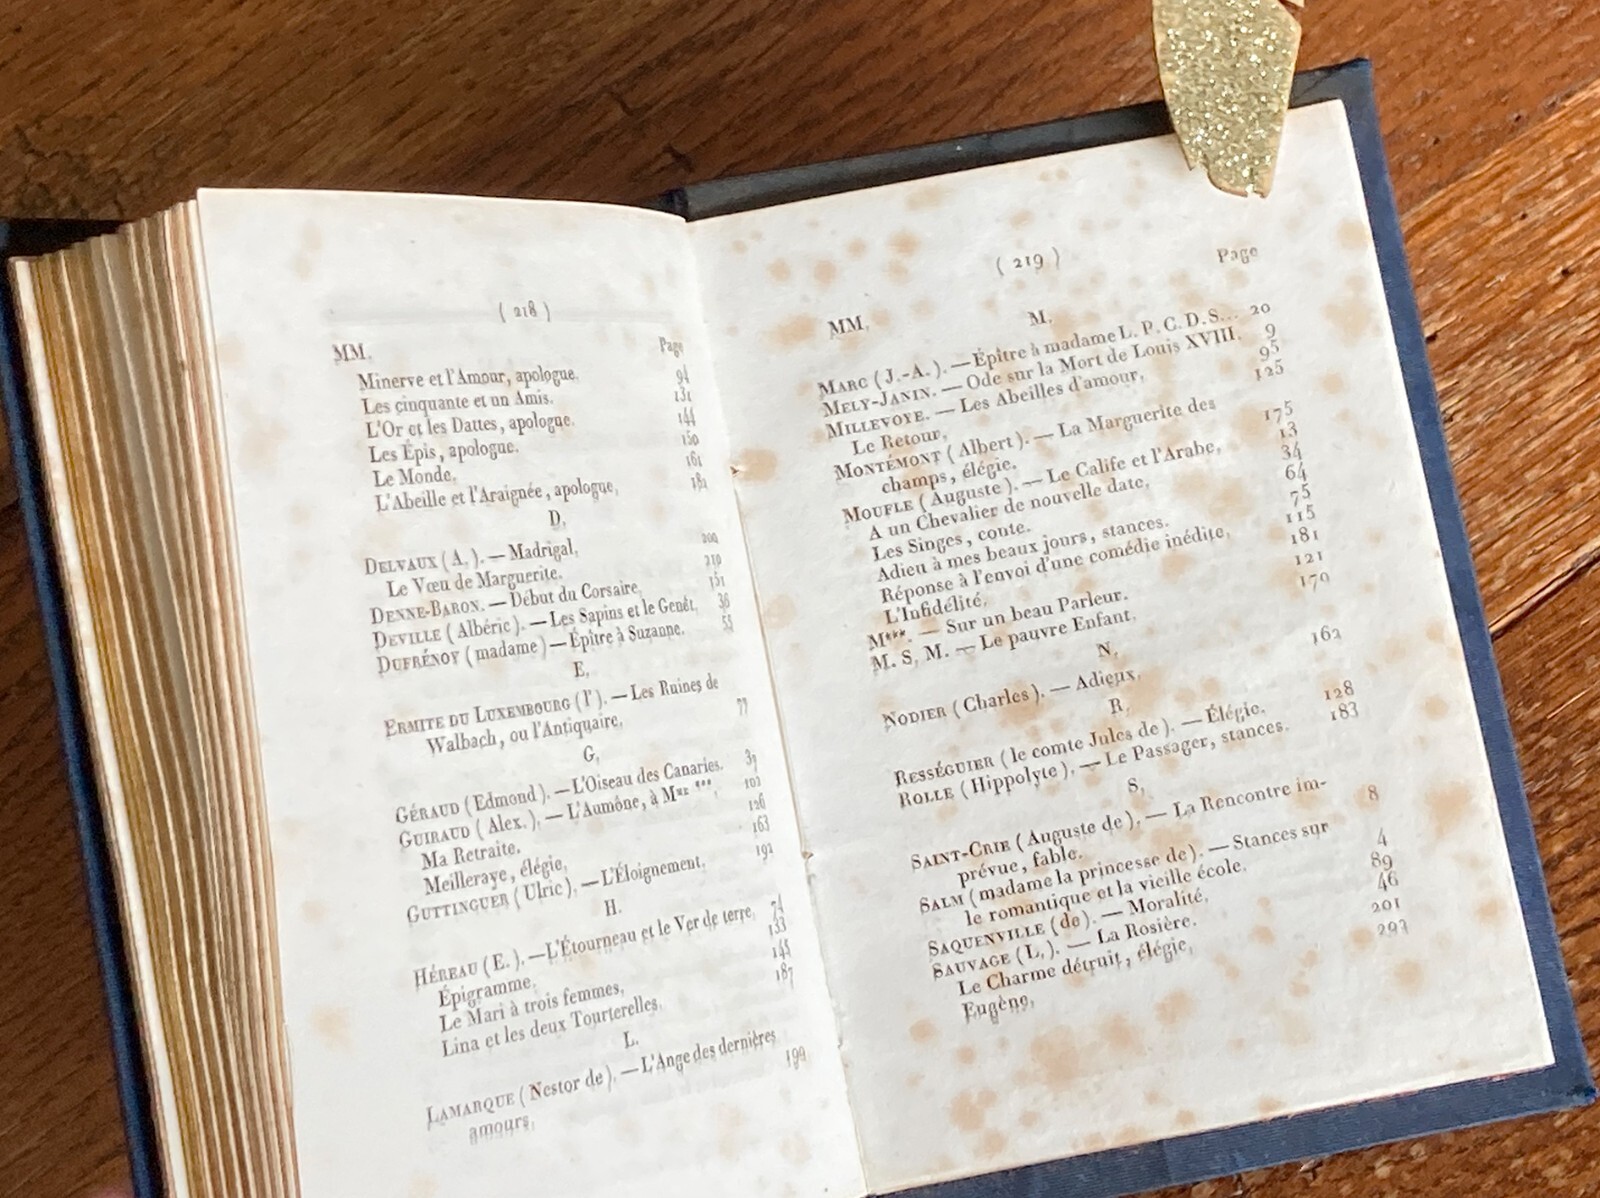 ( 218 )
MM. Page
Minerve et l'Amour, apologue. 94
Les cinquante et un Amis. 131
L'Or et les Dattes, apologue. 144
Les Épis, apologue. 150
Le Monde. 161
L'Abeille et l'Araignée, apologue. 182
D.
DELVAUX (A.). — Madrigal. 200
Le Vœu de Marguerite. 210
DENNE-BARON. — Début du Corsaire. 151
DEVILLE (Albéric). — Les Sapins et le Genêt. 36
DUFRÉNOY (madame) — Épitre à Suzanne. 55
E.
ERMITE DU LUXEMBOURG (l'). — Les Ruines de
Walbach, ou l'Antiquaire. 77
G.
GÉRAUD (Edmond). — L'Oiseau des Canaries. 31
GUIRAUD (Alex.). — L'Aumône, à Mme ***. 102
Ma Retraite. 126
Meilleraye, élégie. 163
GUTTINGUER (Ulric). — L'Éloignement. 192
H.
HÉREAU (E.). — L'Étourneau et le Ver de terre. 74
Épigramme. 133
Le Mari à trois femmes. 145
Lina et les deux Tourterelles. 187
L.
LAMARQUE (Nestor de). — L'Ange des dernières
amours. 199
( 219 )
MM. Page
M.
MARC (J.-A.). — Épitre à madame L. P. C. D. S... 20
MELY-JANIN. — Ode sur la Mort de Louis XVIII. 9
MILLEVOYE. — Les Abeilles d'amour. 95
Le Retour. 125
MONTÉMONT (Albert). — La Marguerite des
champs, élégie. 175
MOUFLE (Auguste). — Le Calife et l'Arabe. 13
A un Chevalier de nouvelle date. 34
Les Singes, conte. 64
Adieu à mes beaux jours, stances. 75
Réponse à l'envoi d'une comédie inédite. 115
L'Infidélité. 181
M***. — Sur un beau Parleur. 121
M. S. M. — Le pauvre Enfant. 170
N.
NODIER (Charles). — Adieux. 162
R.
RESSÉGUIER (le comte Jules de). — Élégie. 128
ROLLE (Hippolyte). — Le Passager, stances. 183
S.
SAINT-CRIE (Auguste de). — La Rencontre im-
prévue, fable. 8
SALM (madame la princesse de). — Stances sur
le romantique et la vieille école. 4
SAQUENVILLE (de). — Moralité. 89
SAUVAGE (L.). — La Rosière. 46
Le Charme détruit, élégie. 201
Eugène. 207